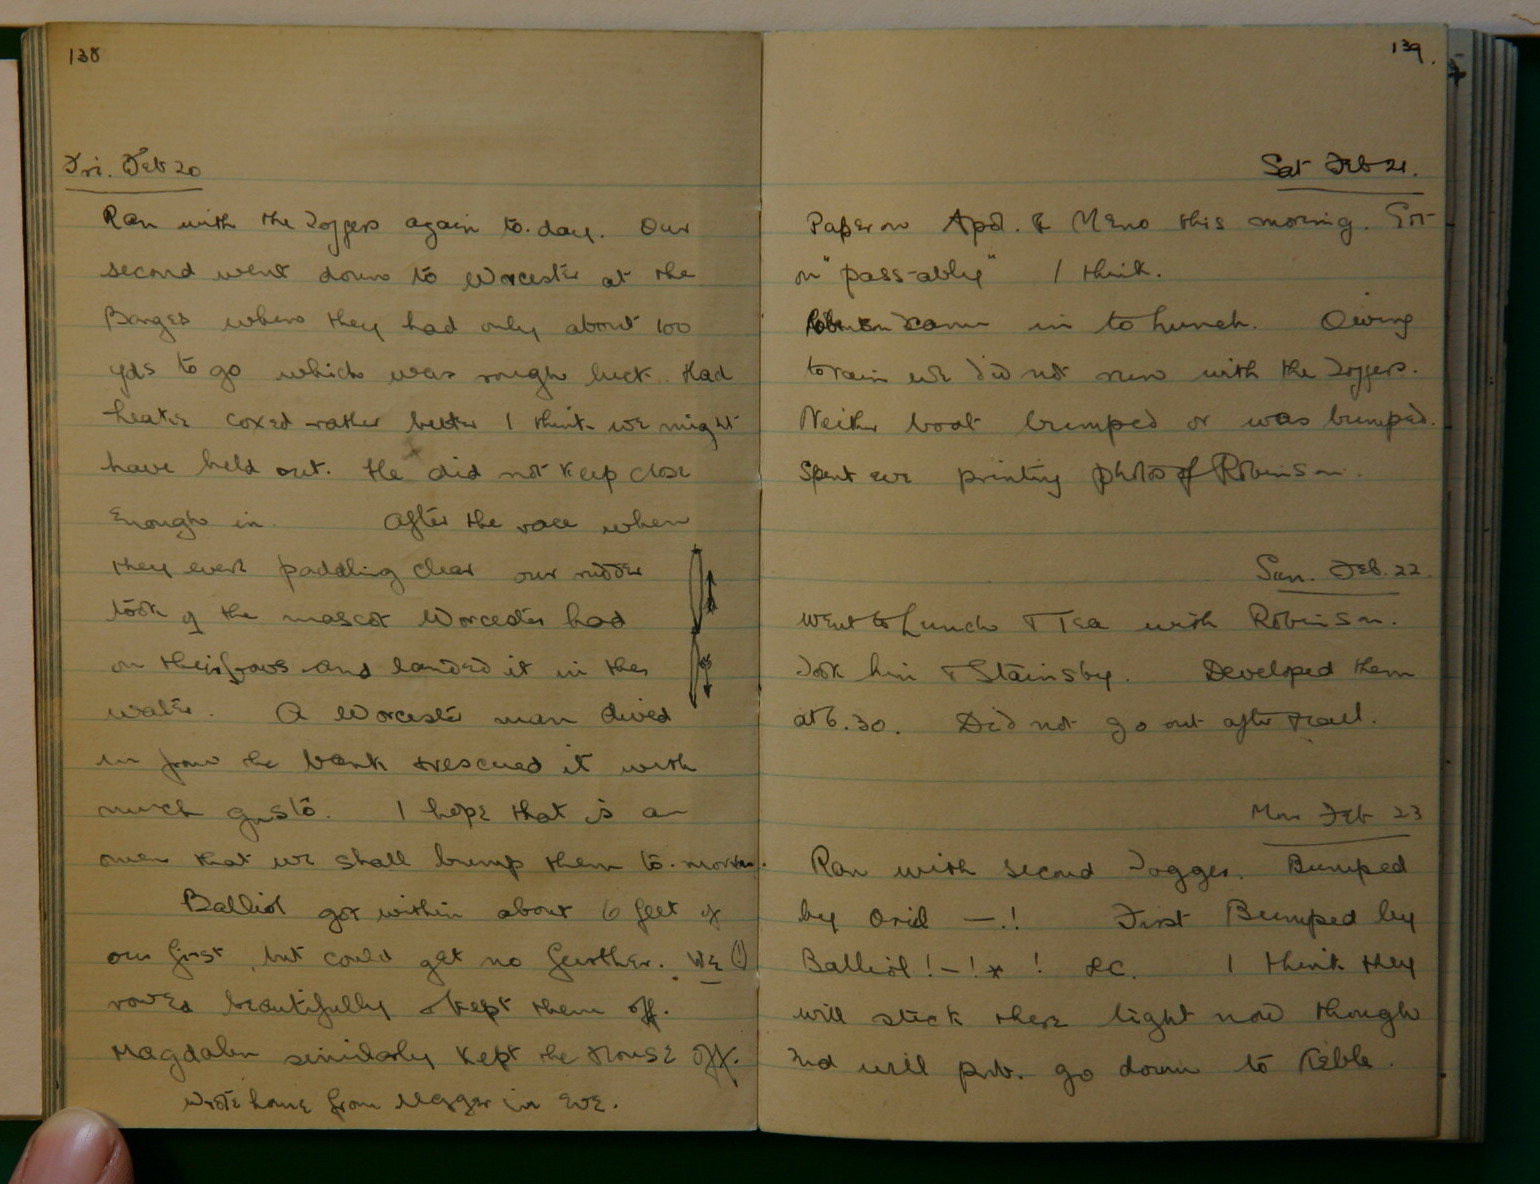 138
Fri. Feb 20
Ran with the Toggers again to-day. Our
second went down to Worcester at the
Barges when they had only about 100
yds to go which was rough luck. Had
coxed rather better I think we might
have held out. He did not keep close
enough in. After the race when
they were paddling clear our rudder
took off the mascot Worcester had
on their bows and landed it in the
water. A Worcester man dived
in from the bank & rescued it with
much gusto. I hope that is an
omen that we shall bump them to-morrow.
Balliol got within about 6 feet of
our first, but could get no further. We (!)
rowed beautifully & kept them off.
Magdalen similarly kept the House off.
Wrote home from in eve.
139.
Sat Feb 21.
Paper on Apol. & Meno this morning. Got
on "pass-ably" I think.
Robinson came in to lunch. Owing
to rain we did not run with the Toggers.
Neither boat bumped or was bumped.
Spent eve printing photos of Robinson.
Sun. Feb. 22.
Went to Lunch & Tea with Robinson.
Took him & Stainsby. Developed them
at 6.30. Did not go out after Hall.
Mon Feb 23
Ran with second Togger. Bumped
by Oriel —.! First Bumped by
Balliol ! — ! * ! &c. I think they
will stick there tight now though
2nd will prob. go down to Keble.